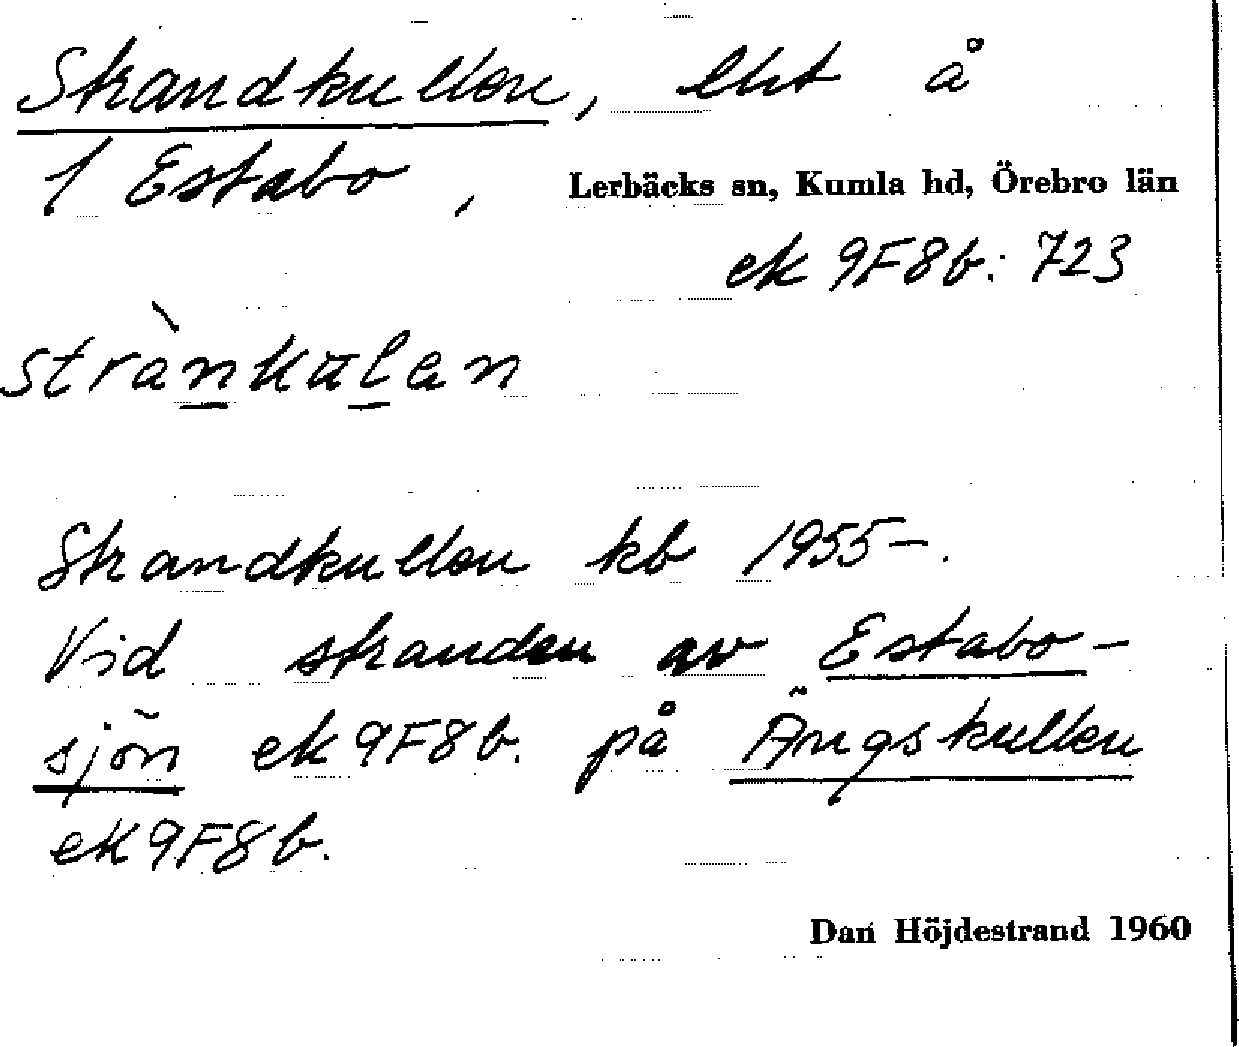 Strandkullen, lht å
1 Estabo, Lerbäcks sn, Kumla hd, Örebro län
ek 9F8b: 723
strànkulan
Strandkullen kb 1955–.
Vid stranden av Estabo-
sjön ek 9F8b. på Ängskullen
ek 9F8b.
Dan Höjdestrand 1960